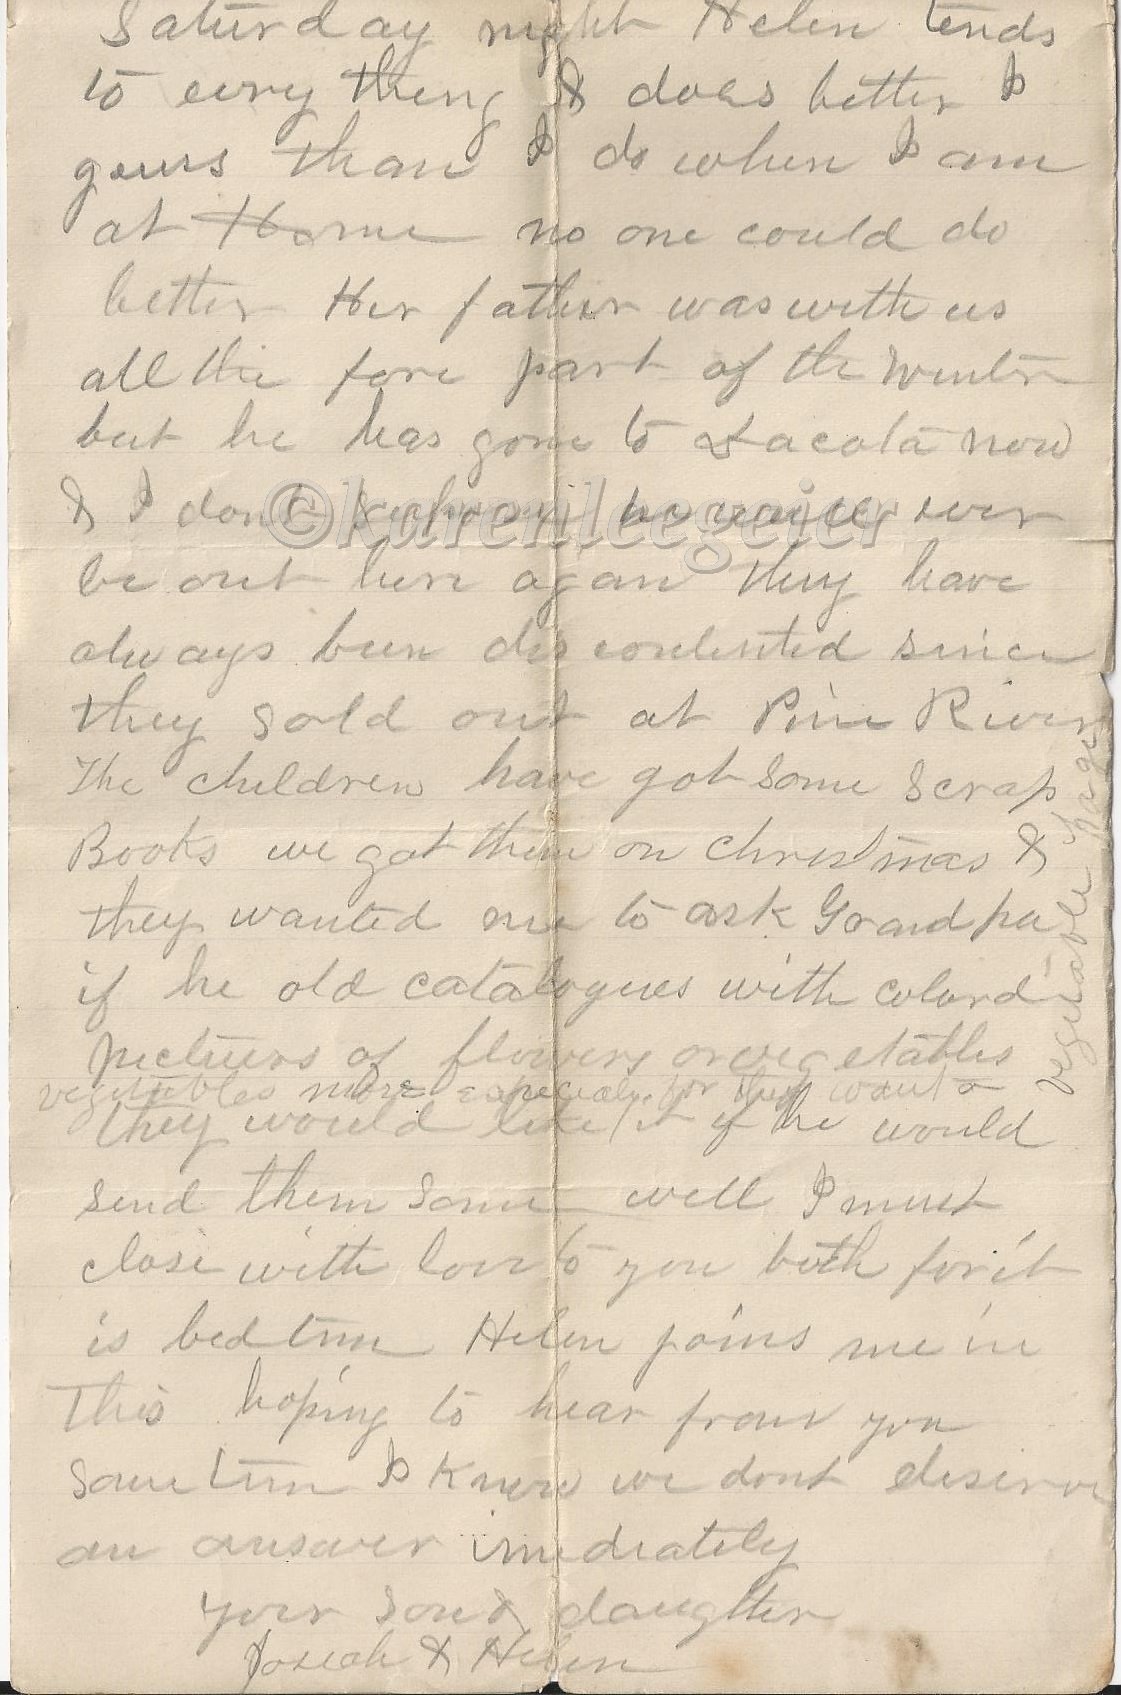 Saturday night Helen tends
to evry thing & does better I
guess than I do when I am
at Home no one could do
better Her father was with us
all the fore part of the winter
but he has gone to Dacota now
& I dont he will ever
©karenleegeier
be out here again they have
always been discontented since
they sold out at Pine River
The children have got some scrap
Books we got them on christmas &
they wanted me to ask Grandpa
if he old catalogues with colord
pictures of flowers or vegetables
vegetables more especialy for they want a
vegetable page
they would like it if he would
send them some well I must
close with love to you both for it
is bedtime Helen joins me in
This hoping to hear from you
sometime I know we dont deserve
an answer imediately
your son & daughter
Josiah & Helen